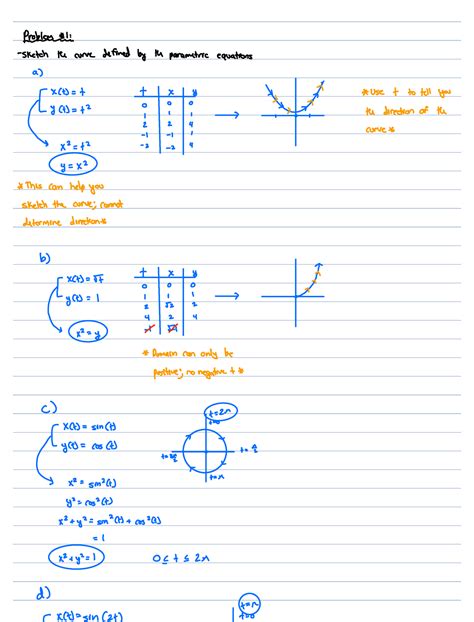 Problem #1:
-Sketch the curve defined by the parametric equations
a)
x(t) = t
y(t) = t²
x² = t²
y = x²
t x y
0 0 0
1 1 1
2 2 4
-1 -1 1
-2 -2 4
* Use t to tell you
the direction of the
curve *
* This can help you
sketch the curve; cannot
determine direction *
b)
x(t) = √t
y(t) = 1
x² = y
t x y
0 0 0
1 1 1
2 √2 2
4 2 4
* Domain can only be
positive; no negative t *
c)
x(t) = sin(t)
y(t) = cos(t)
t=2π
t=0
t=π/2
t=3π/2
t=π
x² = sin²(t)
y² = cos²(t)
x² + y² = sin²(t) + cos²(t)
= 1
x² + y² = 1
0 ≤ t ≤ 2π
d)
x(t) = sin(2t)
t=π
t=0